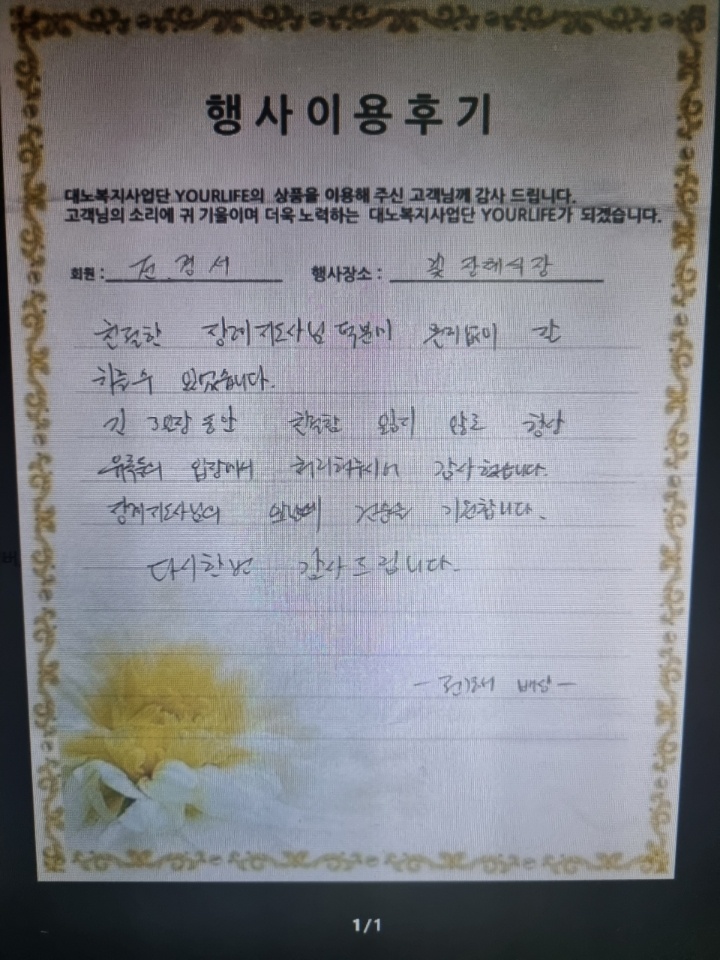 행사이용후기
대노복지사업단 YOURLIFE의 상품을 이용해 주신 고객님께 감사 드립니다.
고객님의 소리에 귀 기울이며 더욱 노력하는 대노복지사업단 YOURLIFE가 되겠습니다.
회원 : 전경서 행사장소 : 꽃 장례식장
친절한 장례지도사님 덕분에 문리없이 잘
치를수 있었습니다.
긴 3일장 동안 친절함 잃지 않고 항상
유족들의 입장에서 처리해주시어 감사했습니다.
장례지도사님의 앞날에 건승을 기원합니다.
다시한번 감사드립니다.
- 전경서 배상 -
1/1